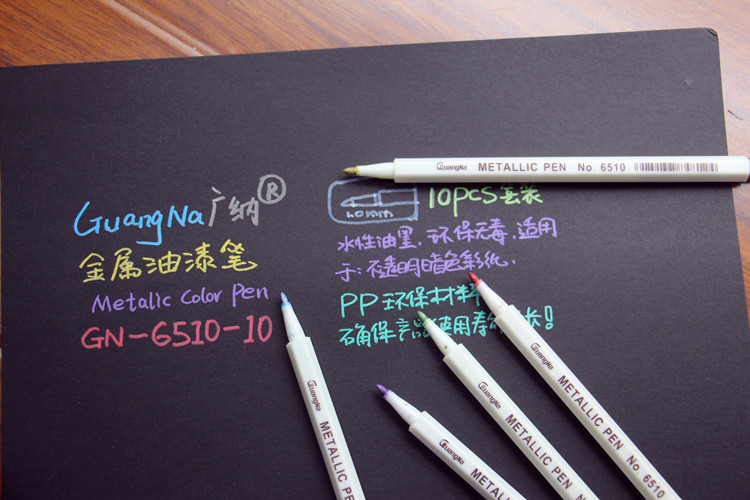 GuangNa广纳®
金属油漆笔
Metalic Color Pen
GN-6510-10
1.0mm
10pcs套装
水性油墨.环保无毒.适用
于:不透明暗色彩纸.
PP环保材料
确保产品使用寿命
GuangNa METALLIC PEN No. 6510
GuangNa METALLIC PEN
GuangNa METALLIC PEN
GuangNa METALLIC PEN No
GuangNa METALLIC PEN No. 6510